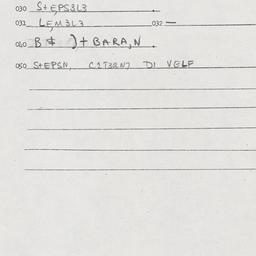 030 S+E,PS3L3
031 LE,M3L3 032 —
040 B $ )+ BARA,N
050 S+EPSN, C1T3RN7 DI VELF